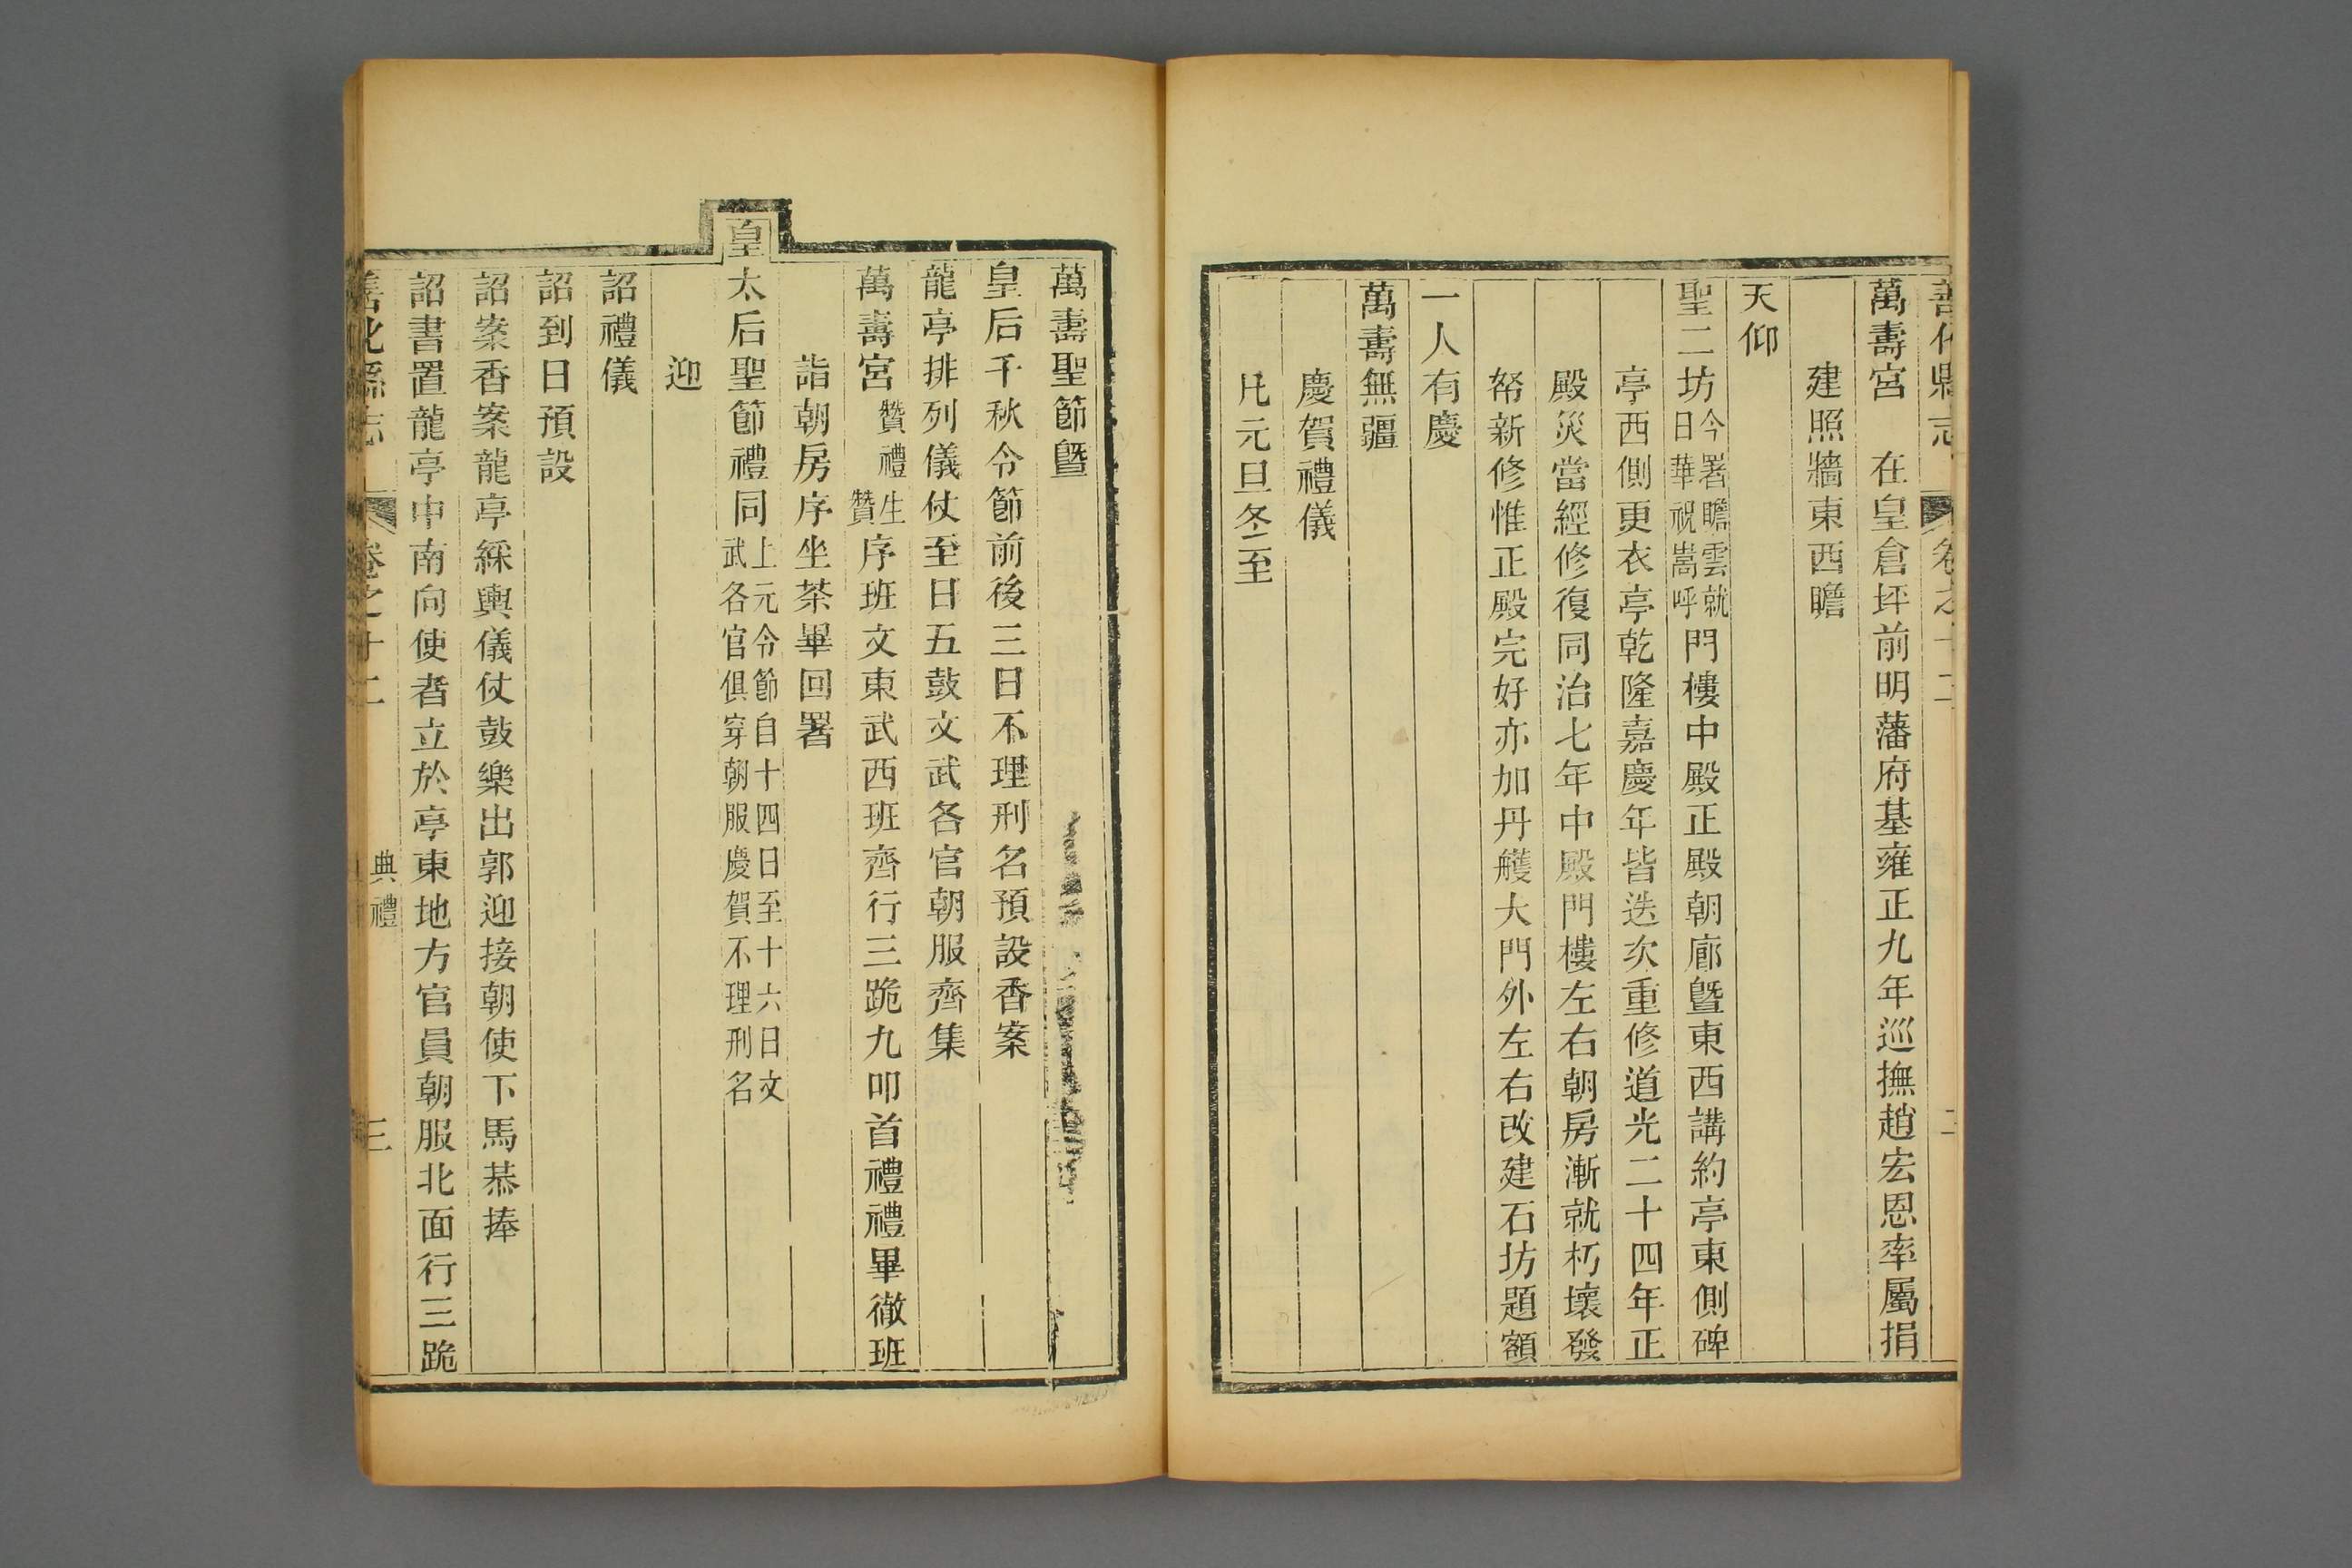 善化縣志 卷之十二 二
萬壽宮 在皇倉坪前明藩府基雍正九年巡撫趙宏恩率屬捐
建照牆東西瞻
天仰
聖二坊今署瞻雲就日華祝嵩呼門樓中殿正殿朝廊暨東西講約亭東側碑
亭西側更衣亭乾隆嘉慶年皆迭次重修道光二十四年正
殿災當經修復同治七年中殿門樓左右朝房漸就朽壞發
帑新修惟正殿完好亦加丹雘大門外左右改建石坊題額
一人有慶
萬壽無疆
慶賀禮儀
凡元旦冬至
萬壽聖節暨
皇后千秋令節前後三日不理刑名預設香案
龍亭排列儀仗至日五鼓文武各官朝服齊集
萬壽宮贊禮生贊序班文東武西班齊行三跪九叩首禮禮畢徹班
詣朝房序坐茶畢回署
皇太后聖節禮同上元令節自十四日至十六日文武各官俱穿朝服慶賀不理刑名
迎
詔禮儀
詔到日預設
詔案香案龍亭綵輿儀仗鼓樂出郭迎接朝使下馬恭捧
詔書置龍亭中南向使者立於亭東地方官員朝服北面行三跪
善化縣志 卷之十二 典禮 三